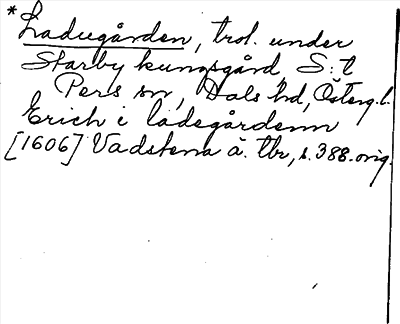 * Ladugården, trol. under
Starby kungsgård, S:t
Pers sn, Dals hd, Österg. l.
Erich i ladegårdenn
[1606] Vadstena ä. tbr, s. 388. orig.